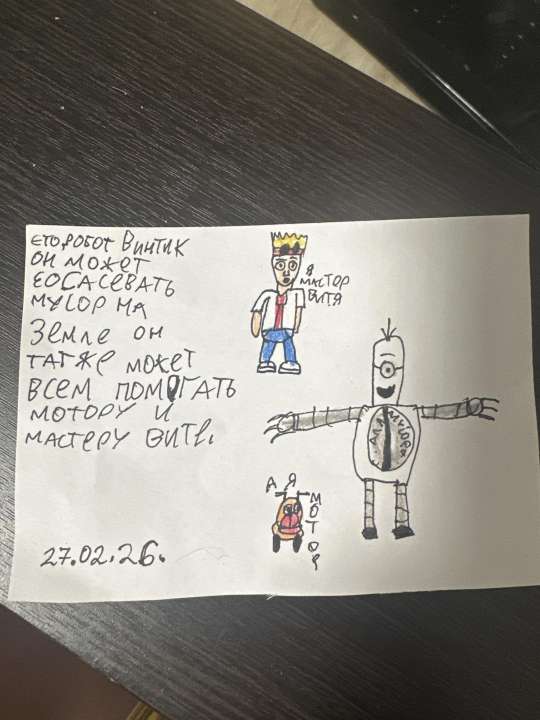 ЄТО,РОБОТ ВИНТИК
ОН МОЖЕТ
ЕОСАСЕВАТЬ
МУСОР НА
Земле он
ТАГЖЕ МОЖЕТ
ВСЕМ ПОМОГАТЬ
МОТОРУ И
МАСТЕРУ ВИТЕ.
27.02.26.
Я
МАСТОР
ВИТЯ
ДЛЯ МУСОРА
А Я
МОТОР